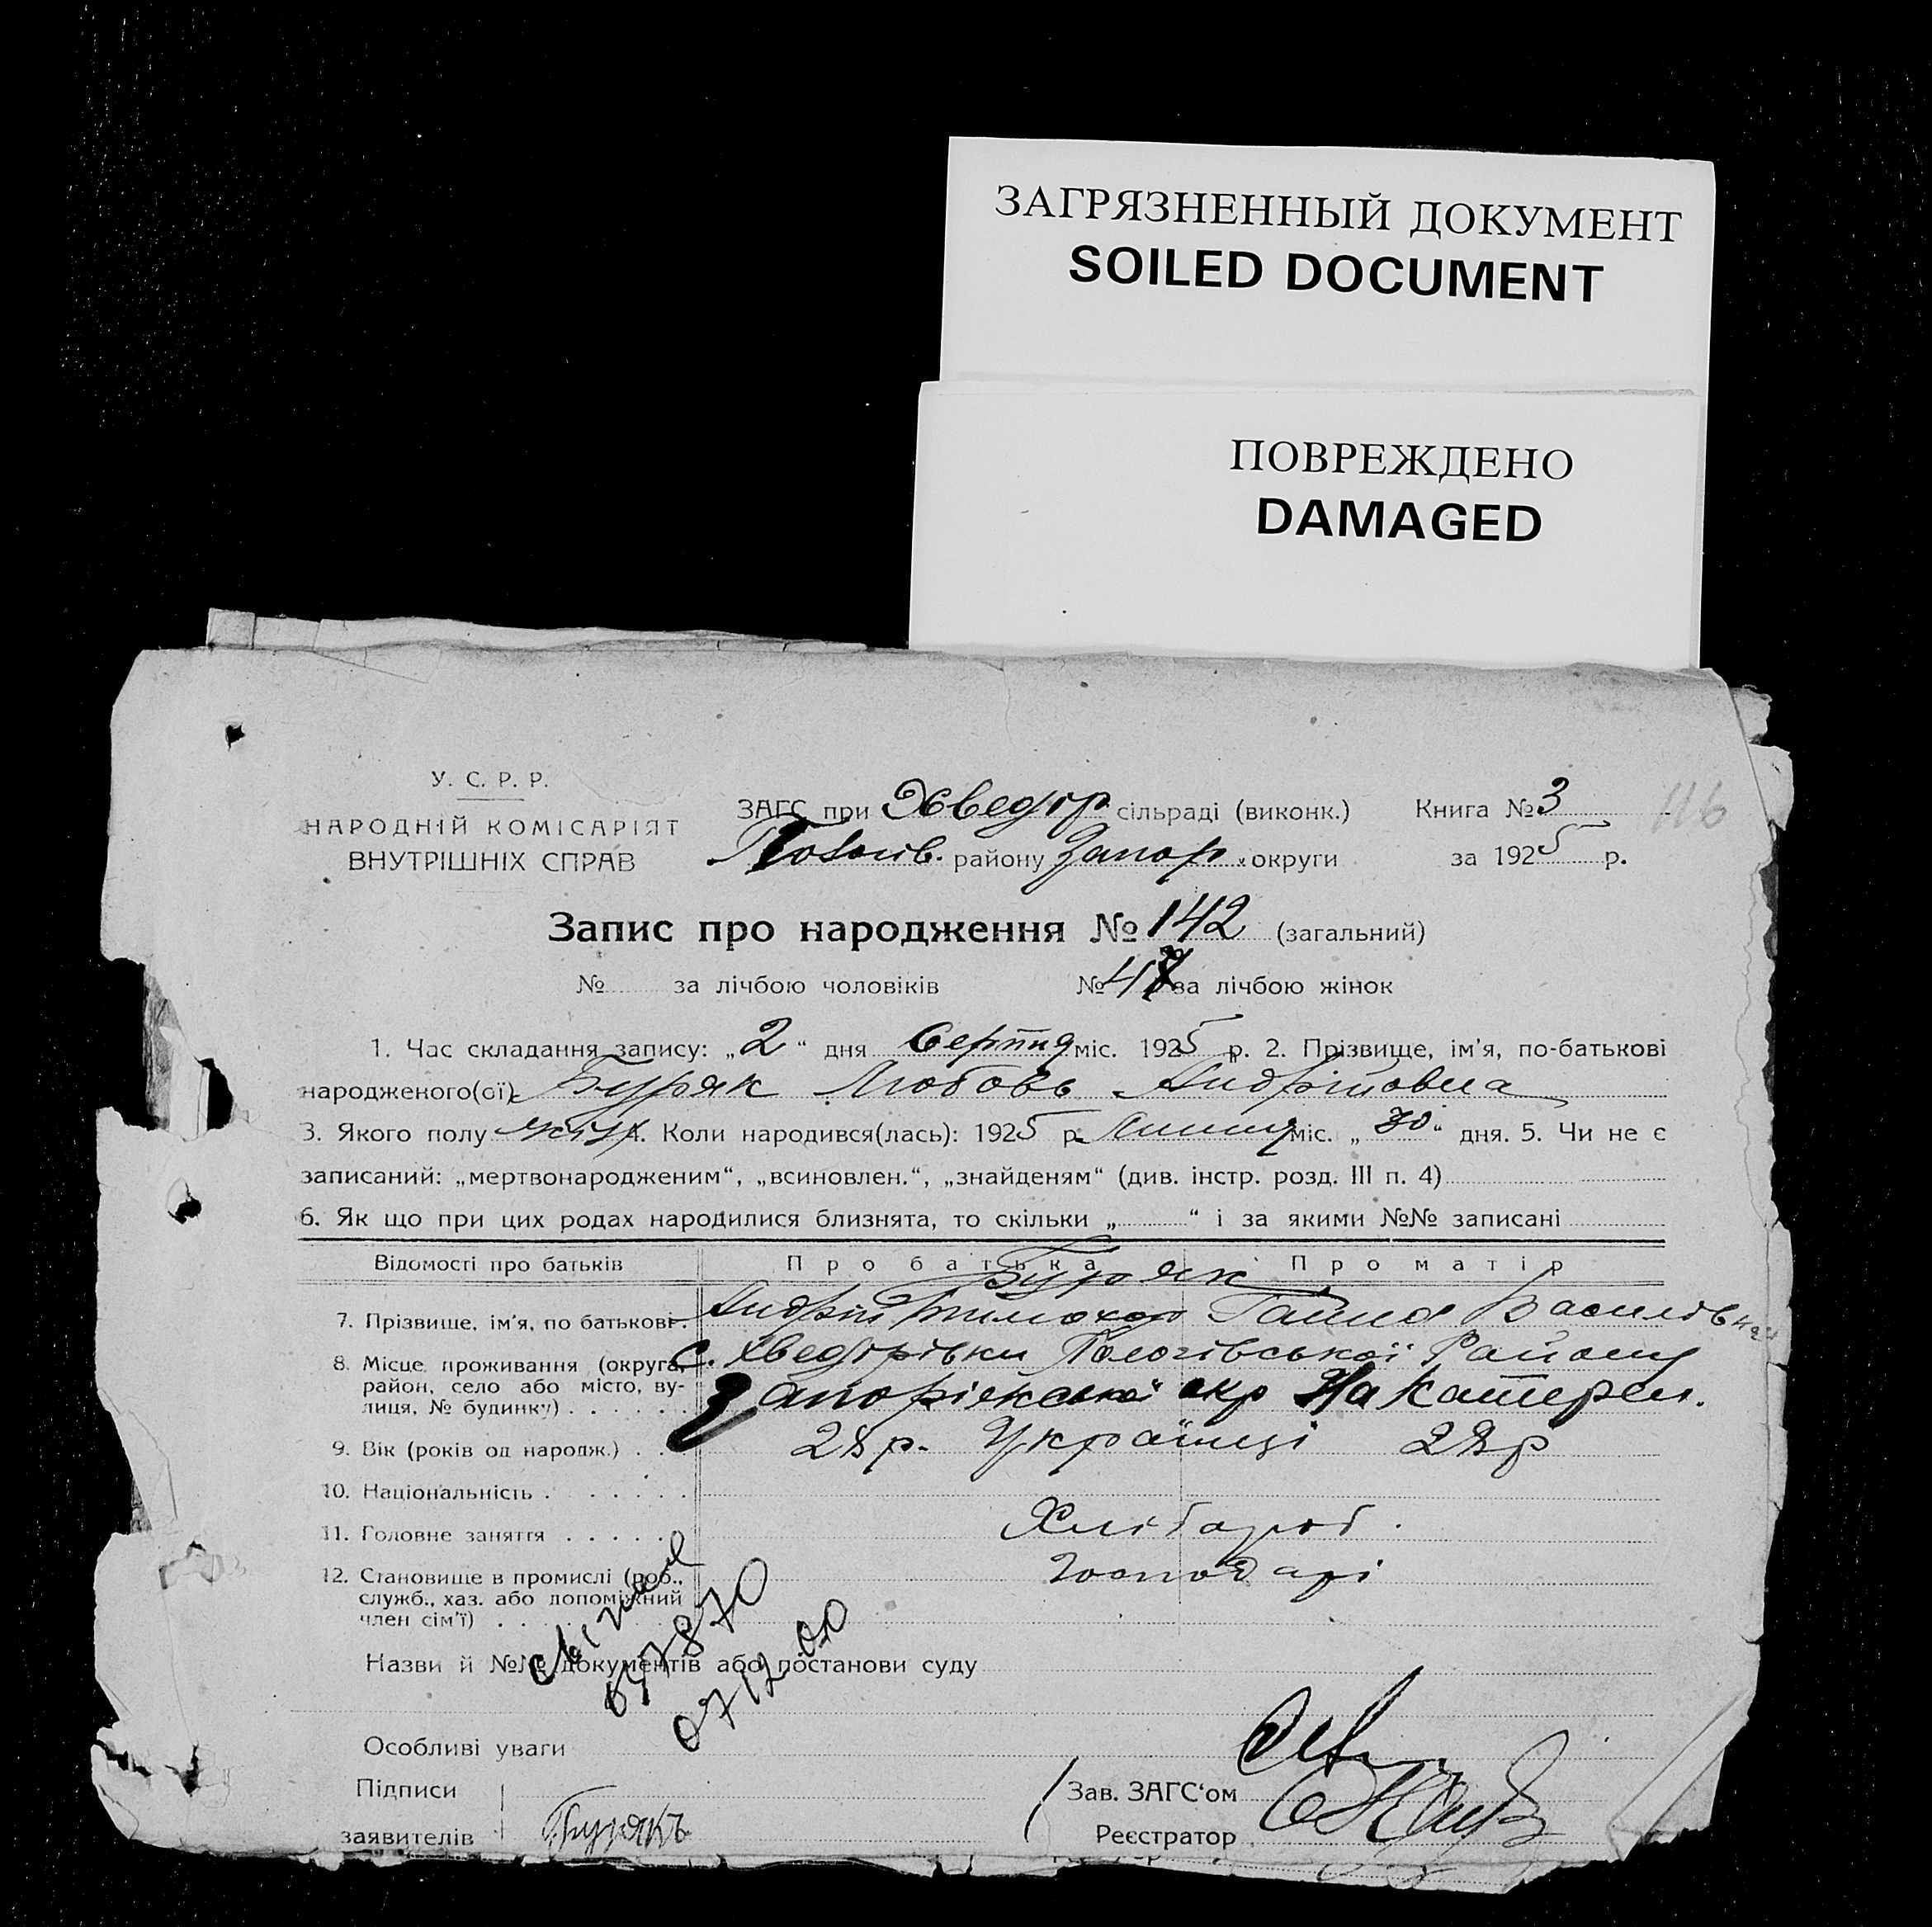 ЗАГРЯЗНЕННЫЙ ДОКУМЕНТ
SOILED DOCUMENT
ПОВРЕЖДЕНО
DAMAGED
116
У. С. Р. Р.
НАРОДНІЙ КОМІСАРІЯТ
ВНУТРІШНІХ СПРАВ
ЗАГС при Хведор. сільраді (виконк.) Книга № 3
району Запор. округи за 1925 р.
Запис про народження № 142 (загальний)
№ за лічбою чоловіків № за лічбою жінок
1. Час складання запису: „2“ дня Серпня міс. 1925 р. 2. Прізвище, ім'я, по-батькові
народженого(ої) Буряк Любовь Андрійовна
3. Якого полу жін. 4. Коли народився(лась): 1925 р. Липня міс. „30“ дня. 5. Чи не є
записаний: „мертвонародженим“, „всиновлен.“, „знайденям“ (див. інстр. розд. III п. 4)
6. Як що при цих родах народилися близнята, то скільки „ “ і за якими №№ записані
Відомості про батьків Про батька Про матір
Буряк
7. Прізвище, ім'я, по батькові. Андрій Тимохов Ганна Василівна
8. Місце проживання (округа, с. Хведорівки Пологівської Району
район, село або місто, ву-
лиця, № будинку) Запоріжської окр На Катерин.
9. Вік (років од народж.) 28 р. Українці 28 р
10. Національність
11. Головне заняття Хлібороб.
12. Становище в промислі (роб., господарі
служб., хаз. або допоміжний
член сім'ї)
647870
071200
Назви й №№ документів або постанови суду
Особливі уваги
Підписи
заявителів Бурякъ
Зав. ЗАГС'ом
Реєстратор